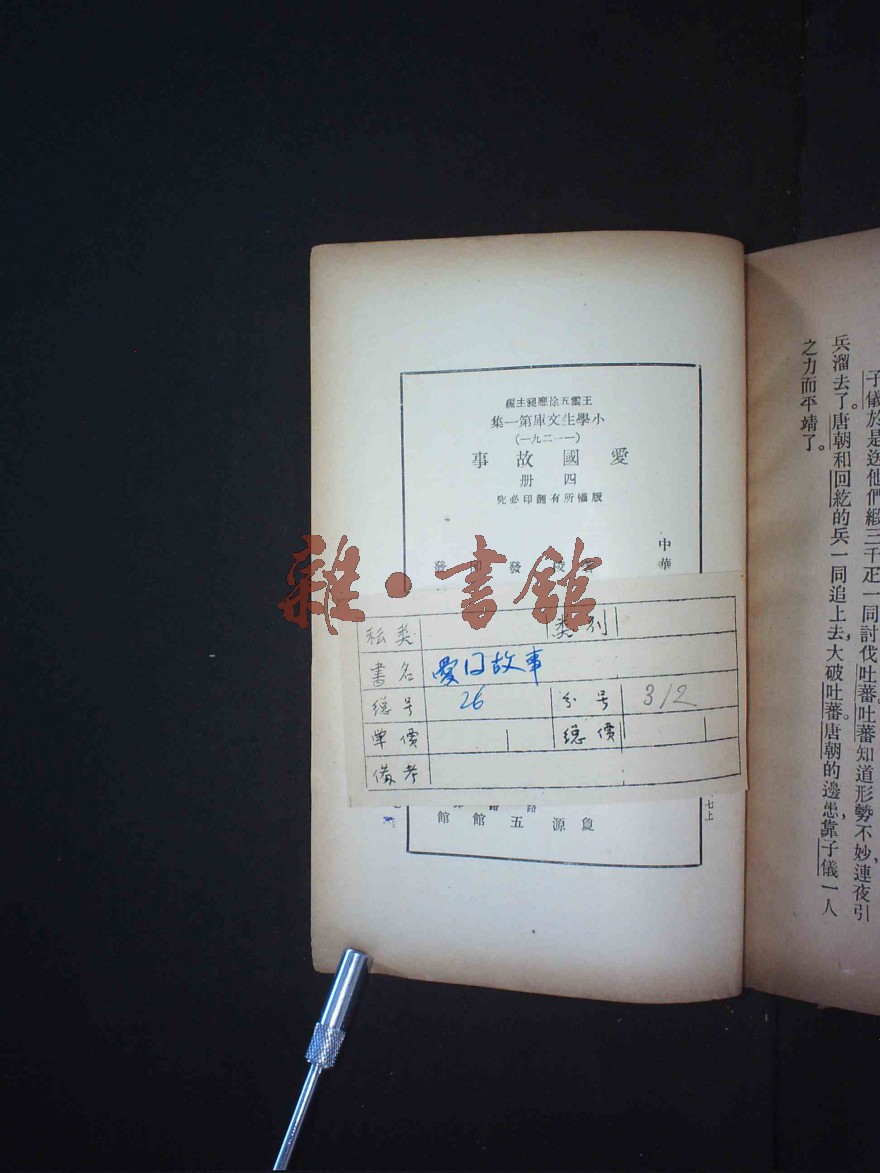 子儀於是送他們緞三千疋一同討伐吐蕃吐蕃知道形勢不妙，連夜引
兵溜去了。唐朝和回紇的兵一同追上去，大破吐蕃。唐朝的邊患，靠子儀一人
之力而平靖了。
王雲五徐應昶主編
小學生文庫第一集
(一一二九一)
愛國故事
四册
版權所有翻印必究
中華
發 印 發
雜·書館
類别
書名 愛囯故事
總号 26 分号 312
單價 總價
備考
七上
路 路
館 館 五 源